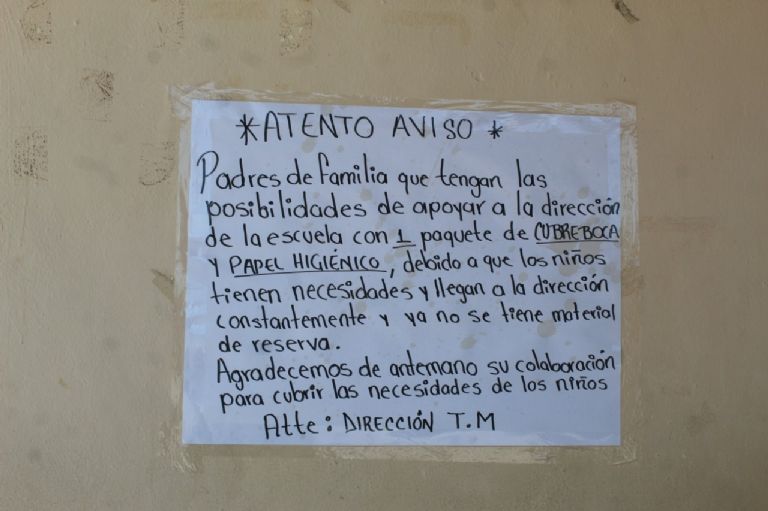 *ATENTO AVISO *
Padres de familia que tengan las
posibilidades de apoyar a la dirección
de la escuela con 1 paquete de CUBREBOCA
Y PAPEL HIGIÉNICO, debido a que los niños
tienen necesidades y llegan a la dirección
constantemente y ya no se tiene material
de reserva.
Agradecemos de antemano su colaboración
para cubrir las necesidades de los niños
Atte: DIRECCIÓN T.M